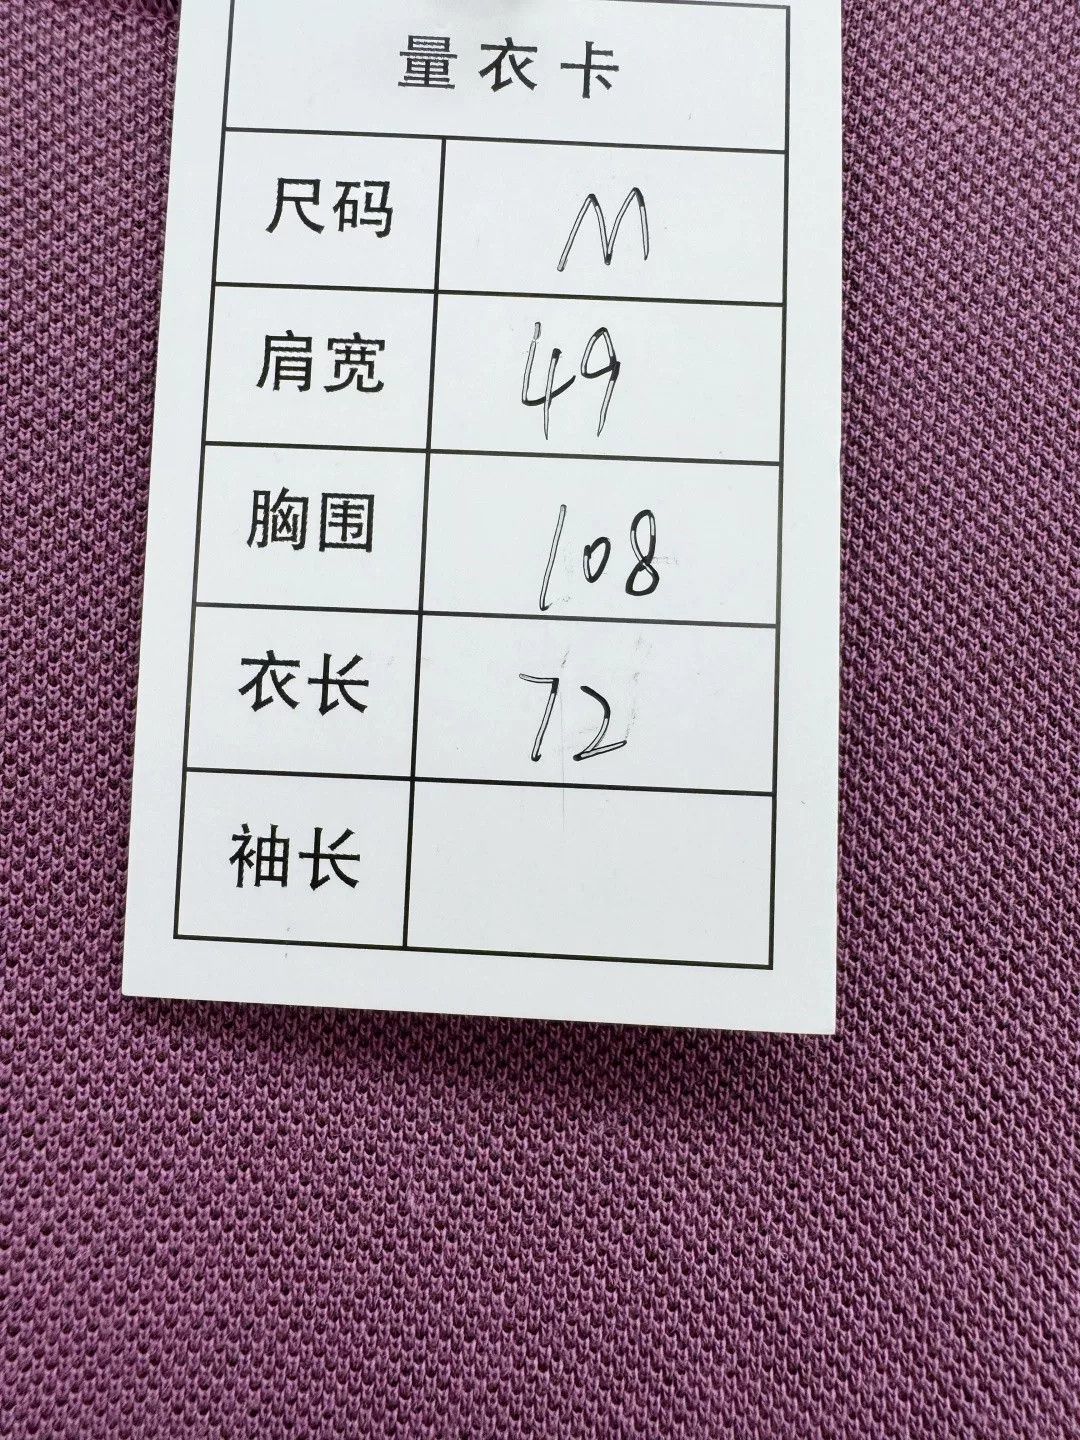 量衣卡
尺码 M
肩宽 49
胸围 108
衣长 72
袖长